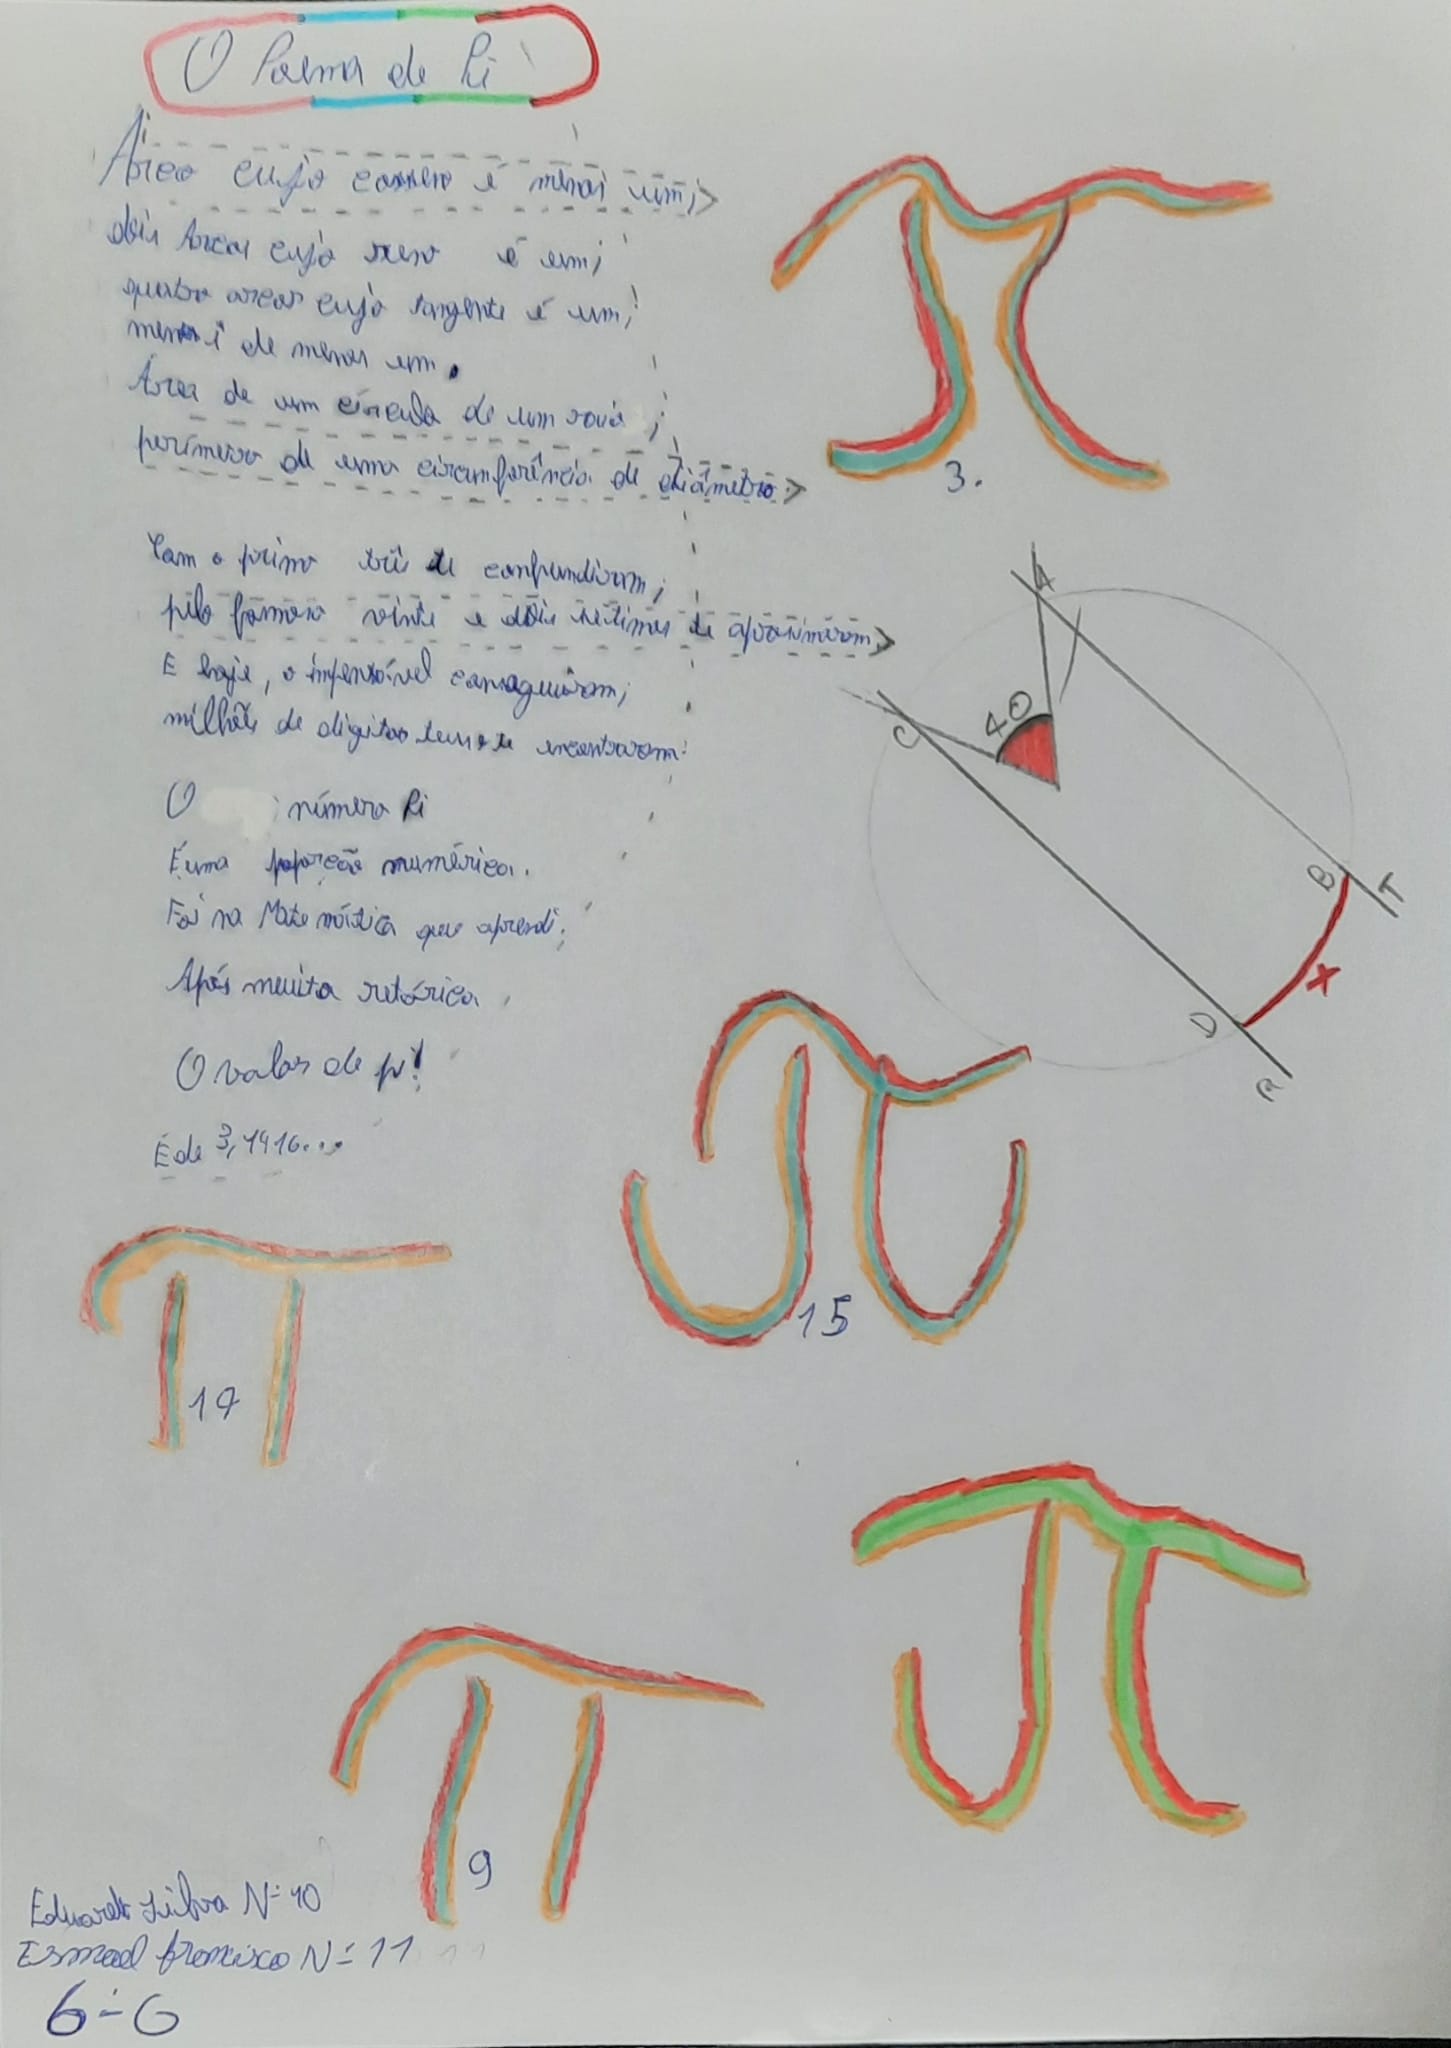 O Poema de Pi
Arco cujo cosseno é menos um;
dois Arcos cujo seno é um;
quatro arcos cujo tangente é um;
menos i de menos um.
Área de um círculo de um raio;
perímero de uma circunferência de diâmetro.
Com o primo três te confundiram;
pelo famoso vinte e dois sétimos te aproximaram,
E hoje, o impensável conseguiram;
milhões de digitos teus te encontraram.
O número Pi
É uma poporção numérica.
Foi na Matemática que aprendi.
Após muita retórica
O valor de pi!
É de 3,1416...
3.
A
40
C
B
T
X
D
R
15
14
9
Eduardo Silva Nº 10
Esmael francisco Nº 11
6º G